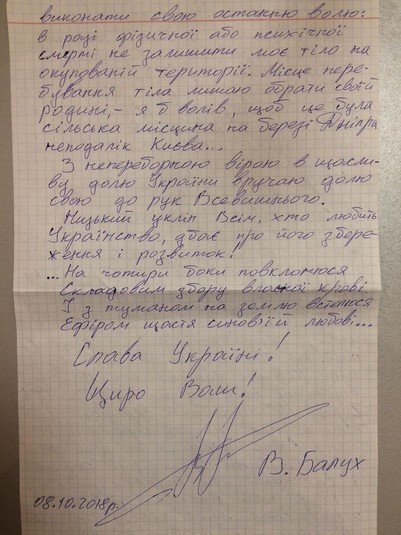 виконати свою останню волю:
в разі фізичної або психічної
смерті не залишити моє тіло на
окупованій території. Місце пере-
бування тіла лишаю обрати своїй
родині, – я б волів, щоб це була
сільська місцина на березі Дніпра
неподалік Києва...
З непереборною вірою в щасли-
ву долю України вручаю долю
свою до рук Всевишнього.
Низький уклін Всім, хто любить
Українство, дбає про його збере-
ження і розвиток!
...На чотири боки повклонюся
Складовим збору власної крові
І з туманом на землю встелюся
Ефіром щастя синовтій любові...
Слава Україні!
Щиро Ваш!
В. Балух
08.10.2018р.